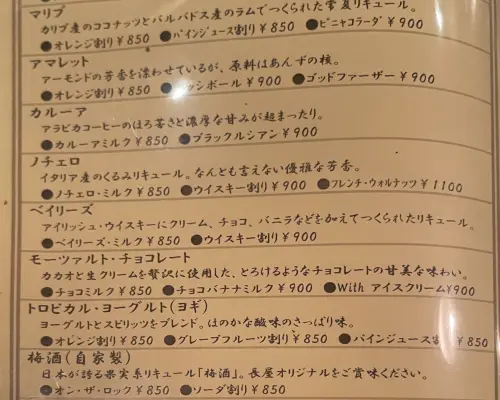 マリブ
カリブ産のココナッツとバルバドス産のラムでつくられた常夏リキュール。
●オレンジ割り￥850 ●パインジュース割り￥850 ●ピニャコラーダ￥900
アマレット
アーモンドの芳香を漂わせているが、原料はあんずの核。
●オレンジ割り￥850 ッシンボール￥900 ●ゴッドファーザー￥900
カルーア
アラビカコーヒーのほろ苦さと濃厚な甘みが超まったり。
●カルーアミルク￥850 ●ブラックルシアン￥900
ノチェロ
イタリア産のくるみリキュール。なんとも言えない優雅な芳香。
●ノチェロ・ミルク￥850 ●ウイスキー割り￥900 ●フレンチ・ウォルナッツ￥1100
ベイリーズ
アイリッシュ・ウイスキーにクリーム、チョコ、バニラなどを加えてつくられたリキュール。
●ベイリーズ・ミルク￥850 ●ウイスキー割り￥900
モーツァルト・チョコレート
カカオと生クリームを贅沢に使用した、とろけるようなチョコレートの甘美な味わい。
●チョコミルク￥850 ●チョコバナナミルク￥900 ●With アイスクリーム￥900
トロピカル・ヨーグルト(ヨギ)
ヨーグルトとスピリッツをブレンド。ほのかな酸味のさっぱり味。
●オレンジ割り￥850 ●グレープフルーツ割り￥850 ●パインジュース割り￥850
梅酒(自家製)
日本が誇る果実系リキュール「梅酒」。長屋オリジナルをご賞味ください。
●オン・ザ・ロック￥850 ●ソーダ割り￥850